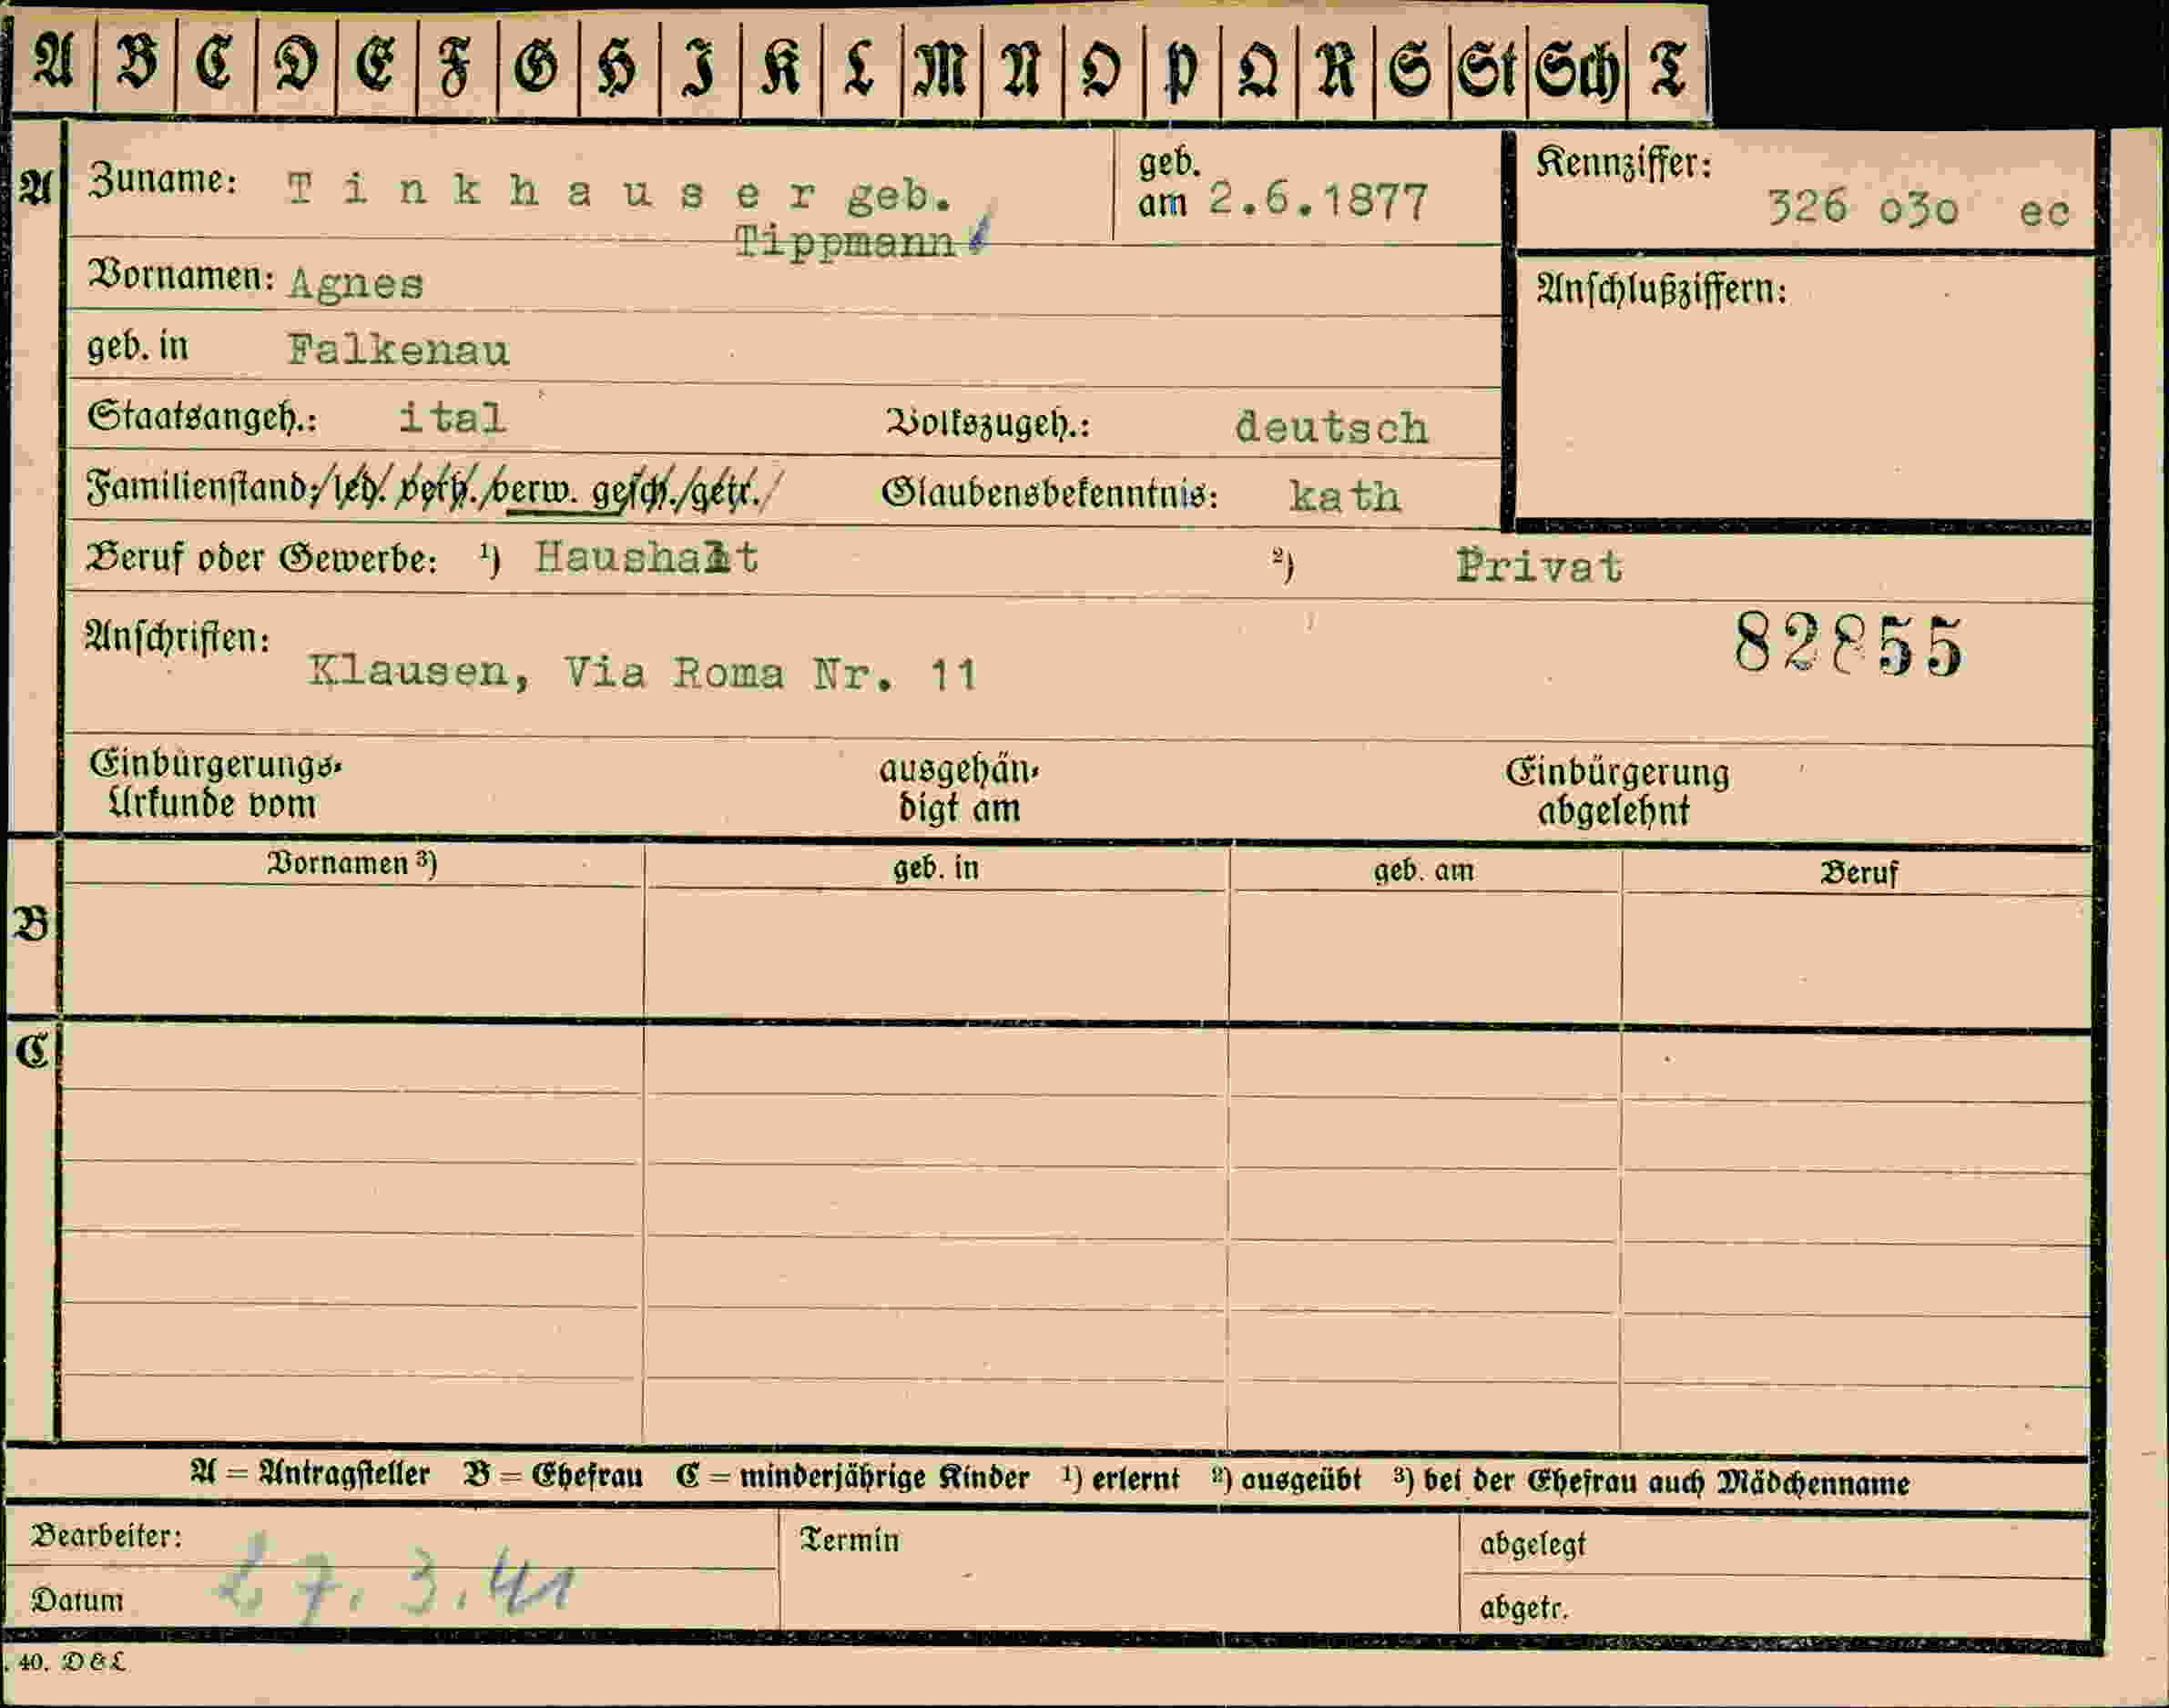 A B C D E F G H I K L M N O P Q R S St Sch T
A Zuname: Tinkhauser geb. geb. am 2.6.1877 Kennziffer:
Tippmann 326 o3o ec
Vornamen: Agnes Anschlußziffern:
geb. in Falkenau
Staatsangeh.: ital Volkszugeh.: deutsch
Familienstand: led. verh. verw. gesch. getr. Glaubensbekenntnis: kath
Beruf oder Gewerbe: ¹) Haushalt ²) Privat
Anschriften: 82855
Klausen, Via Roma Nr. 11
Einbürgerungs- ausgehän- Einbürgerung
Urkunde vom digt am abgelehnt
Vornamen ³) geb. in geb. am Beruf
B
C
A = Antragsteller B = Ehefrau C = minderjährige Kinder ¹) erlernt ²) ausgeübt ³) bei der Ehefrau auch Mädchenname
Bearbeiter: Termin abgelegt
Datum 27.3.41 abgetr.
. 40. D & L